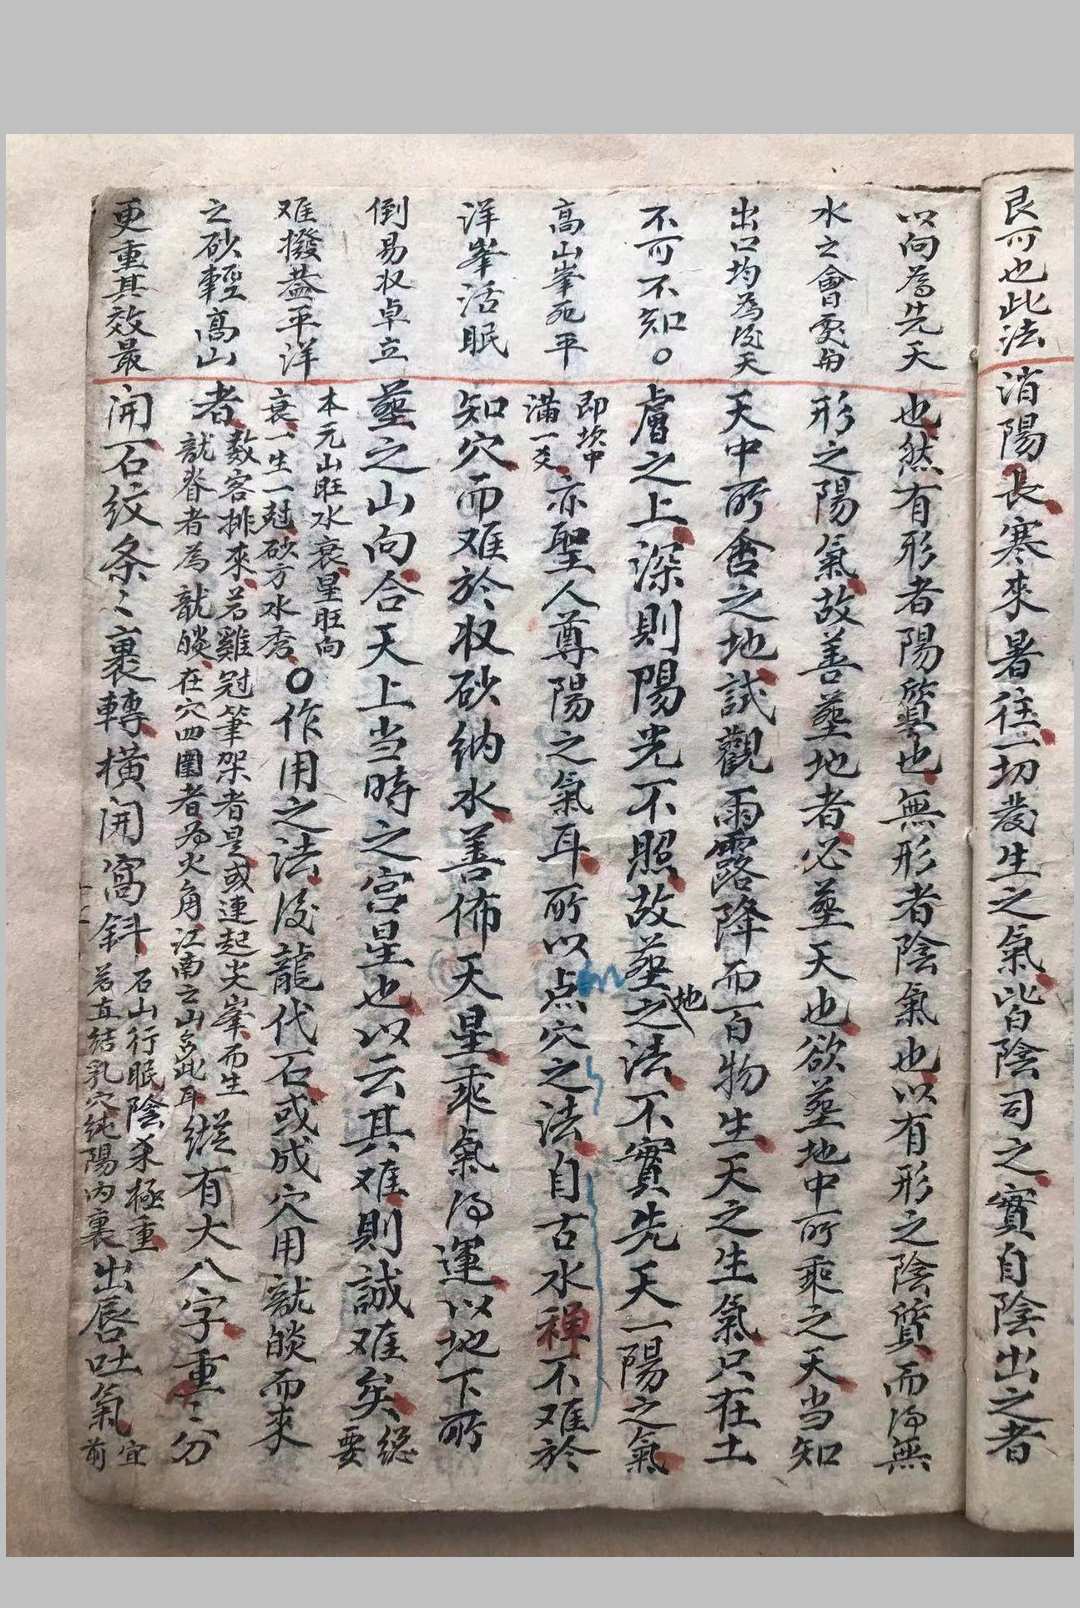 艮可也此法
以向為先天
水之會處匀
出口均為後天
不可不知。
高山峯死平
洋峯活眠
倒易収卓立
难撥葢平洋
之砂輕高山
更重其效最
消陽長寒來暑往一切发生之氣皆陰司之實自陰出之者
也然有形者陽質也無形者陰氣也以有形之陰質而得無
形之陽氣故善塟地者必塟天也欲塟地中所乘之天当知
天中所含之地試觀雨露降而百物生天之生氣只在土
膚之上深則陽光不照故塟地之法不實先天一陽之氣
即坎中
滿一爻
亦聖人尊陽之氣耳所以点穴之法自古水禅不难於
知穴而难於収砂纳水善佈天星乘氣得運以地下所
塟之山向合天上当時之宫星也以云其难則誠难矣
總
要
本元山旺水衰星旺向
衰一生一尅砂方水秀
○作用之法後龍代石或成穴用龍皢而來
者
數客排來若雞冠筆架者是或連起尖峯而生
龍脊者為龍皢在穴四圍者為火角江南之山多此耳
縱有大八字重〻分
開石纹条〻裏轉橫開窩斜
石山行眠陰杀極重
若直結乳穴純陽內裏
出唇吐氣
宜
前